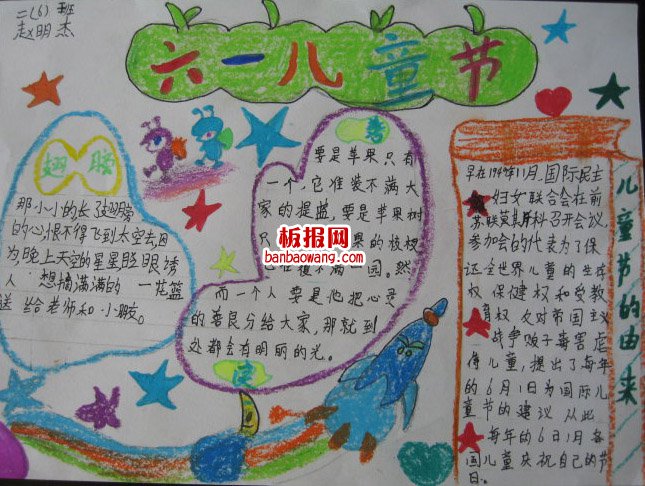 二(6)班
赵明杰
六一儿童节
翅膀
那小小的长翅膀
的心恨不得飞到太空去,因
为晚上天空的星星眨眼诱
人 想摘满满的 一花篮
送 给老师和小朋友。
善
要是苹果只有
一个,它准装不满大
家的提篮,要是苹果树
只 果的枝桠
它准覆不满一园。然
而一个人 要是他把心灵
的善良分给大家,那就到
处都会有明丽的光。
良
板报网
banbaowang.com
儿童节的由来
早在1949年11月,国际民主
妇女联合会在前
苏联莫斯科召开会议,
参加会的代表为了保
证全世界儿童的生存
权 保健 权和受教
育权 反对帝国主义
战争贩子毒害虐
待儿童,提出了每年
的6月1日为国际儿
童节的建议 从此
每年的6月1日各
国儿童庆祝自己的节
日。